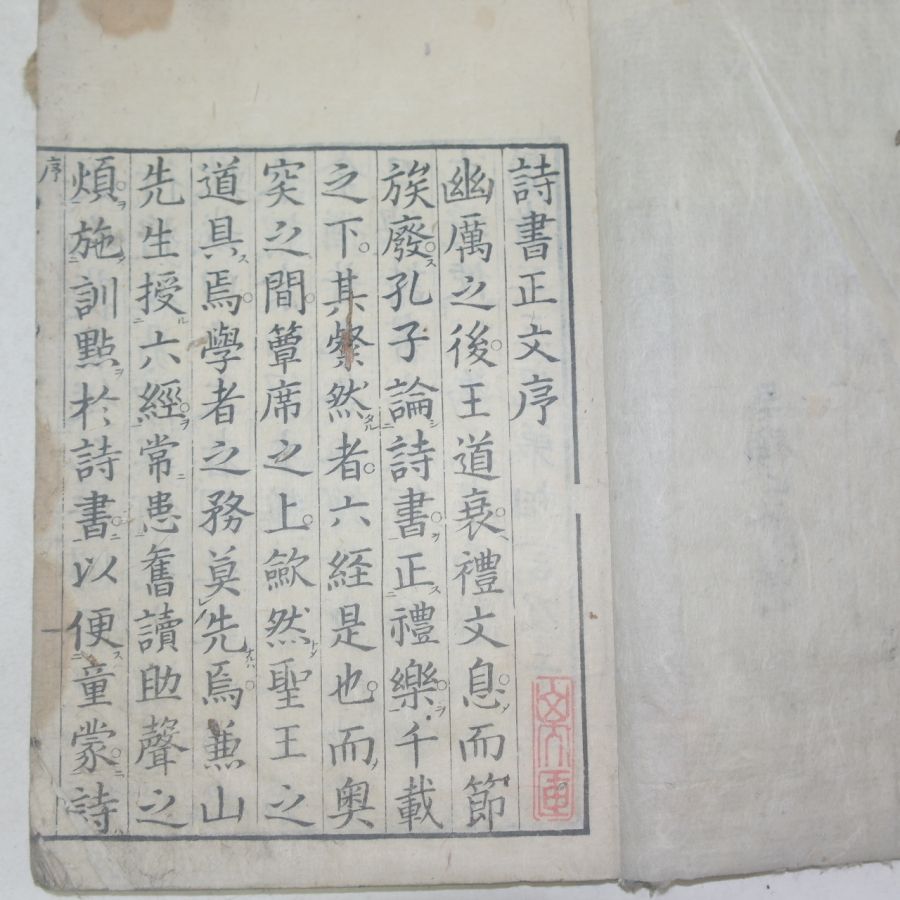 詩書正文序
幽厲之後。王道衰。禮文息。而節
族廢。孔子論詩書。正禮樂。千載
之下。其粲然者。六経是也。而奥
突之間。簟席之上。歛然聖王之
道具焉。學者之務莫先焉。兼山
先生授六經。常患奮讀助聲之
煩。施訓點於詩書。以便童蒙。詩
序